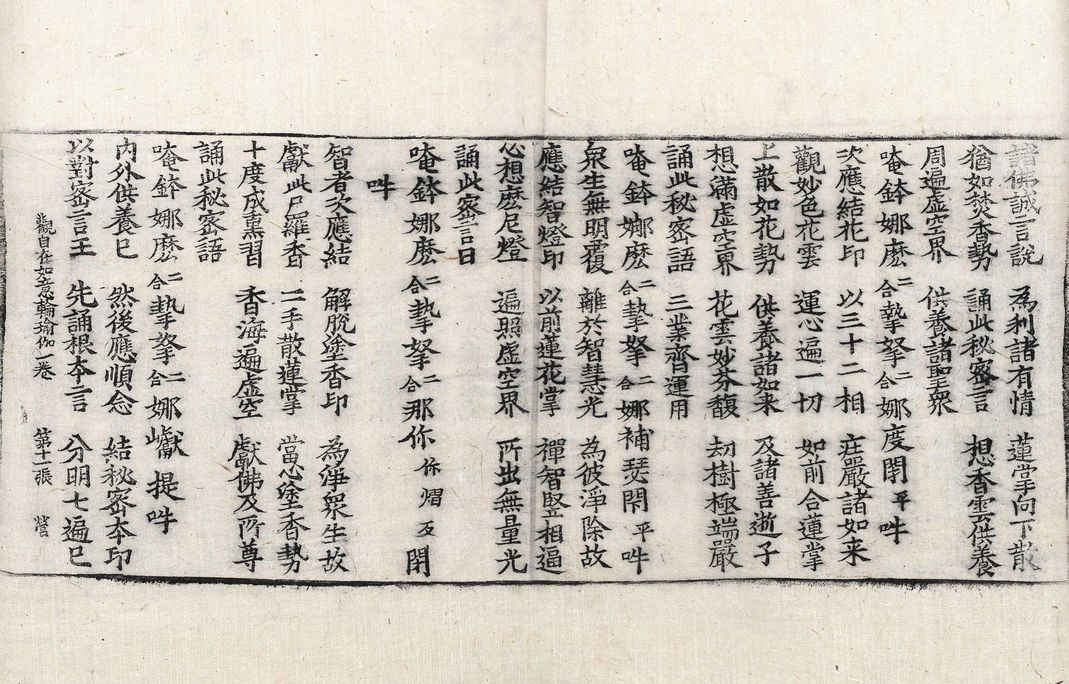 諸佛誠言說 為利諸有情 蓮掌向下散
猶如焚香勢 誦此秘密言 想香雲供養
周遍虛空界 供養諸聖衆
唵鉢娜麽二合摰拏二合娜度閇平吽
次應結花印 以三十二相 莊嚴諸如来
觀妙色花雲 運心遍一切 如前合蓮掌
上散如花勢 供養諸如来 及諸善逝子
想滿虛空界 花雲妙芬馥 劫樹極端嚴
誦此秘密語 三業齊運用
唵鉢娜麽二合摰拏二合娜補瑟閇平吽
衆生無明覆 離於智慧光 為彼淨除故
應結智燈印 以前蓮花掌 禪智竪相逼
心想麽尼燈 遍照虛空界 所出無量光
誦此密言曰
唵鉢娜麽二合摰拏二合那你你熠反閇
吽
智者次應結 解脫塗香印 為淨衆生故
獻此尸羅香 二手散蓮掌 當心塗香勢
十度成熏習 香海遍虛空 獻佛及所尊
誦此秘密語
唵鉢娜麽二合摰拏二合娜巘提吽
內外供養已 然後應順念 結秘密本印
以對密言王 先誦根本言 分明七遍已
觀自在如意輪瑜伽一卷 第十一張 營